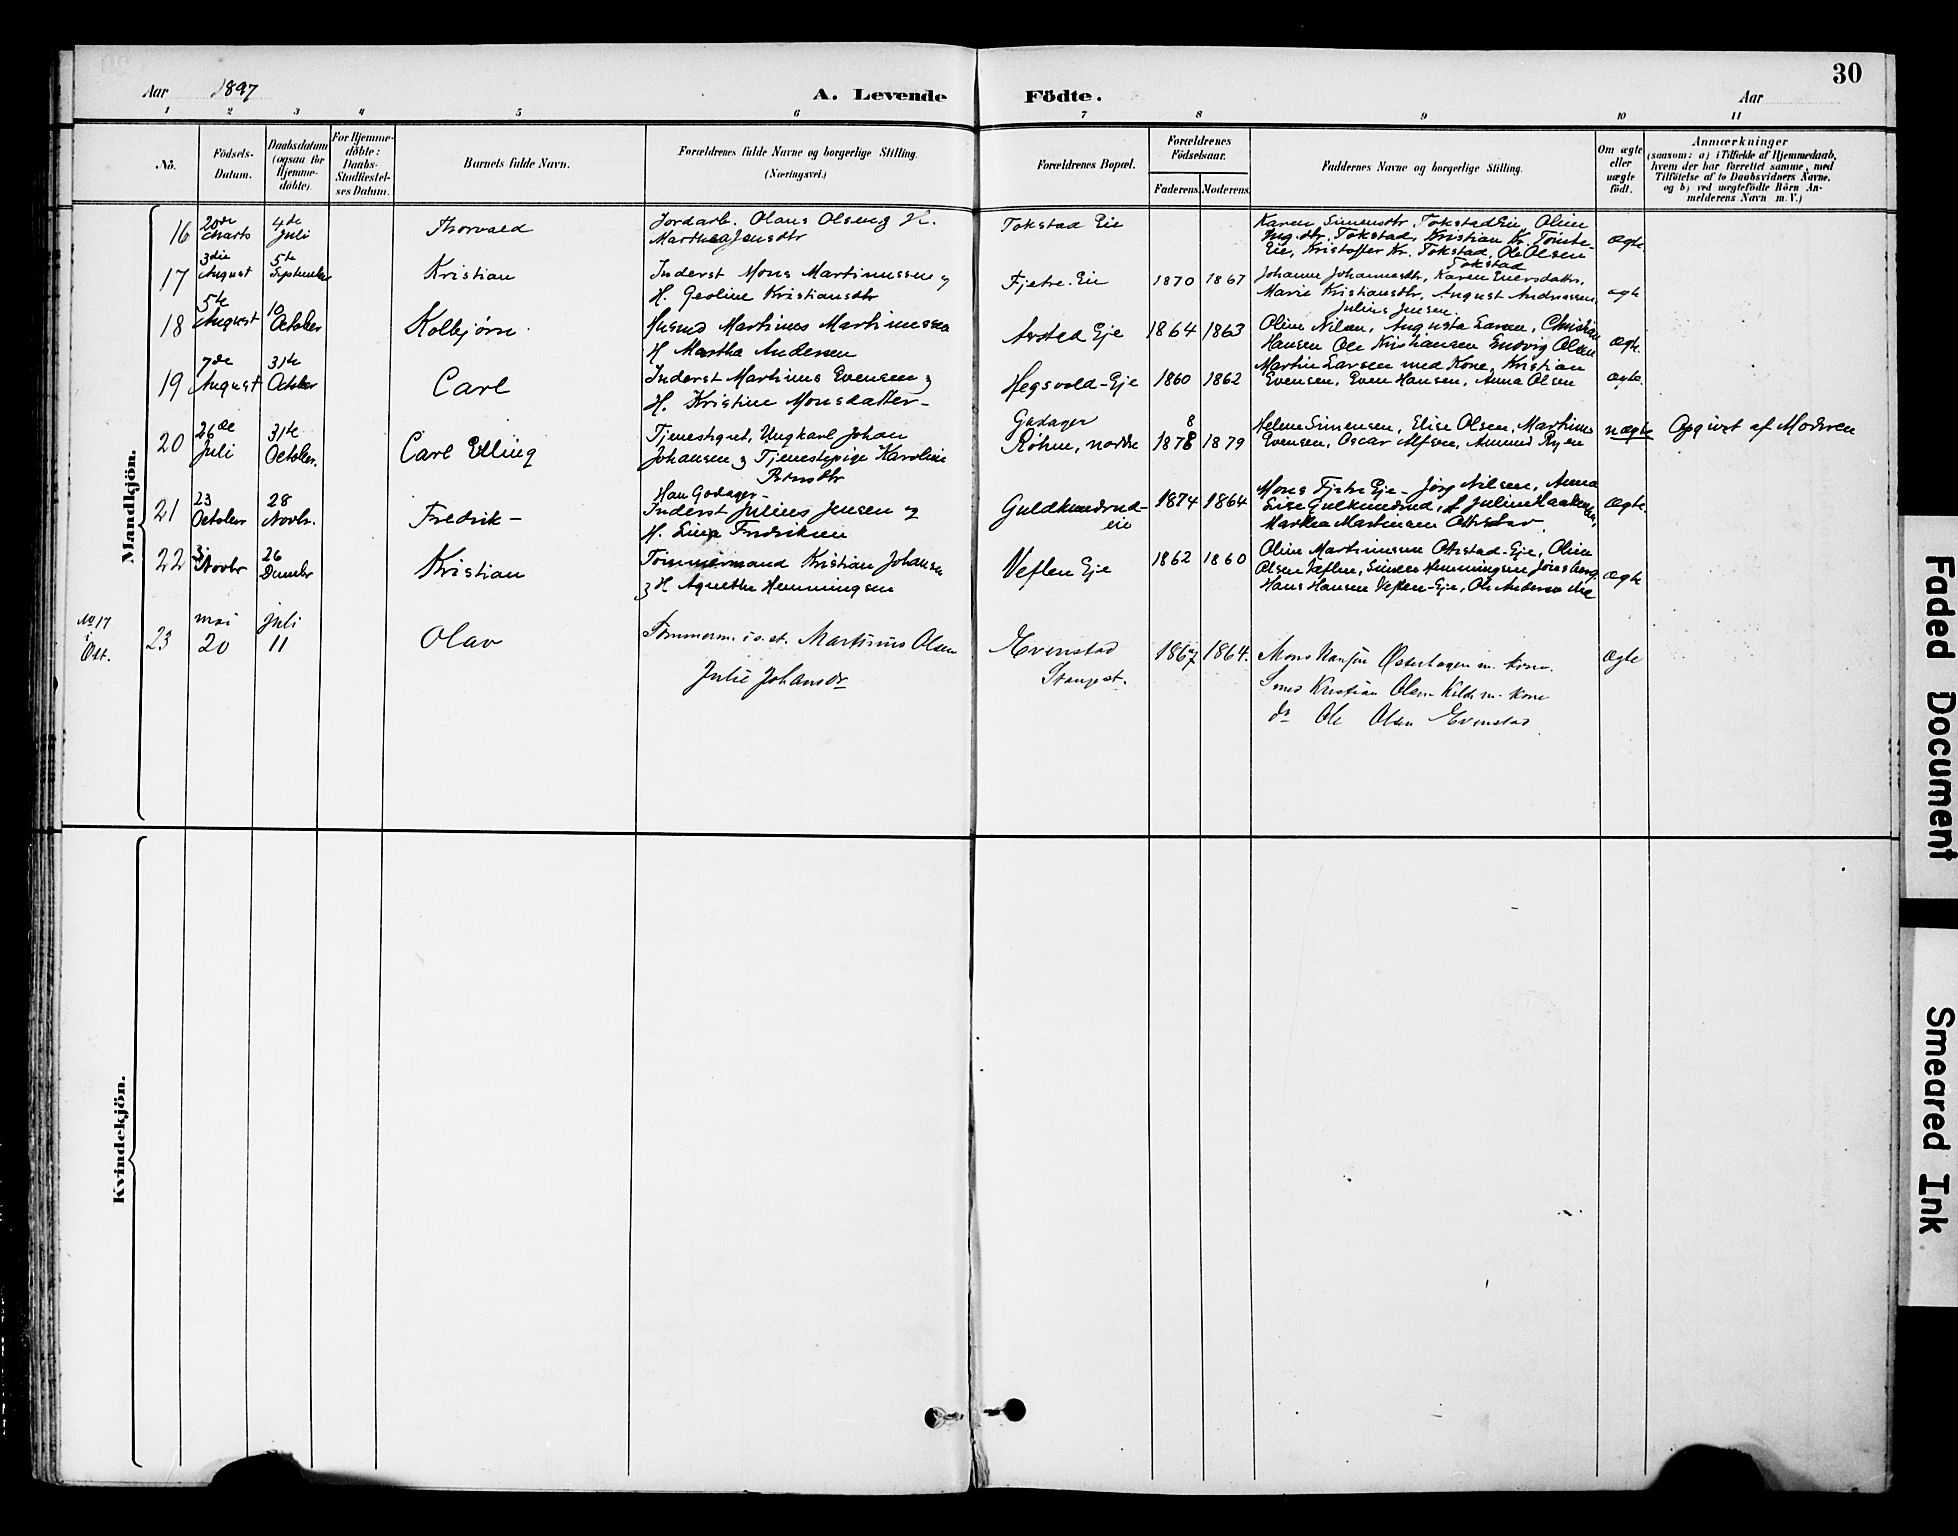 30
Aar 1897
A. Levende Födte.
Aar
1 2 3 4 5 6 7 8 9 10 11
No.
Födsels-Datum.
Daabsdatum (ogsaa for Hjemme-döbte).
For Hjemme-döbte: Daabs-Stadfæstel-ses Datum.
Barnets fulde Navn.
Forældrenes fulde Navne og borgerlige Stilling.
(Næringsvei.)
Forældrenes Bopæl.
Forældrenes Födselsaar.
Faderens. Moderens.
Faddernes Navne og borgerlige Stilling.
Om ægte eller uægte födt.
Anmærkninger
(saasom: a) i Tilfælde af Hjemmedaab,
hvem der har forrettet samme, med
Tilföielse af to Daabsvidners Navne,
og b) ved uægtefödte Börn An-
melderens Navn m. V.)
Mandkjön.
16 20de Marts 4de Juli Thorvald Jordarb. Olaus Olsen & H. Marthea Jensdtr Tokstad Eie
Karen Simensdtr. Tokstad Eie, Oline
Ing. dtr. Tokstad, Kristian Kr. Tomte-
Eie, Kristoffer Kr. Tokstad, Ole Olsen
Tokstad
Ægte
17 3die August 5te September Kristian Inderst Mons Martinussen og H. Geoline Kristiansdtr Fjetre. Eie 1870 1867
Johanne Johannesdtr, Karen Eversdatter,
Marie Kristiansdtr, August Andreassen,
Julius Jensen.
ægte
18 5te August 10 October Kolbjørn. Husmd Martinus Martinussen H. Martha Andersen Arstad Eje 1864 1863
Oline Nilsen, Augusta Larsen, Christian
Hansen Ole Kristiansen Ludvig Olsen
Ægte.
19 7de August 31te October Carl Inderst Martinus Evensen & H. Kristine Monsdatter- Hegsvold-Eje 1860 1862
Martin Larsen med Kone, Kristian
Evensen, Even Hansen, Anna Olsen
Ægte.
20 26de Juli 31te October. Carl Elling Tjenestegut, Ungkarl Johan
Johansen & Tjenestepige Karoline
Berntsdtr
Godager
Røhne, nordre 8 1878 1879
Helene Simensen, Elise Olsen, Martinus
Evensen, Oscar Alfsen, Amund Ryen
uægte Opgivet af Moderen
21 23 October 28 Novbr. Fredrik-
Han Godager-
Inderst Julius Jensen og
H. Lina Fredriksen
Guldkundrud-eie 1874 1864
Mons Fjetre Eje- Jörg Nilsen, Anna
Lise Gulkundrud, Julius Haakensen,
Marthea Martinsen Ottestad.
Ægte.
22 3. Novbr 26 Decembr Kristian Tömmermand Kristian Johansen
& H. Agnethe Hemmingsen
Veflen Eje 1862 1860
Oline Martinussen Ottestad-Eje, Oline
Olsen Veflen, Simen Hemmingsen Jönsberg,
Hans Hansen Veflen-Eje, Ole Andersen
Ægte
No 17 i Ott.
23 mai 20 juli 11 Olav Tømmerm. i o. st. Martinius Olsen
Julie Johansdr
Evenstad
Stangest.
1867 1864.
Mons Hansen Østerhagen m. kone.
Smed Kristian Olsen Kilde m. kone
do Ole Olsen Evenstad
Ægte
Kvindekjön.
Faded Document
Smeared Ink